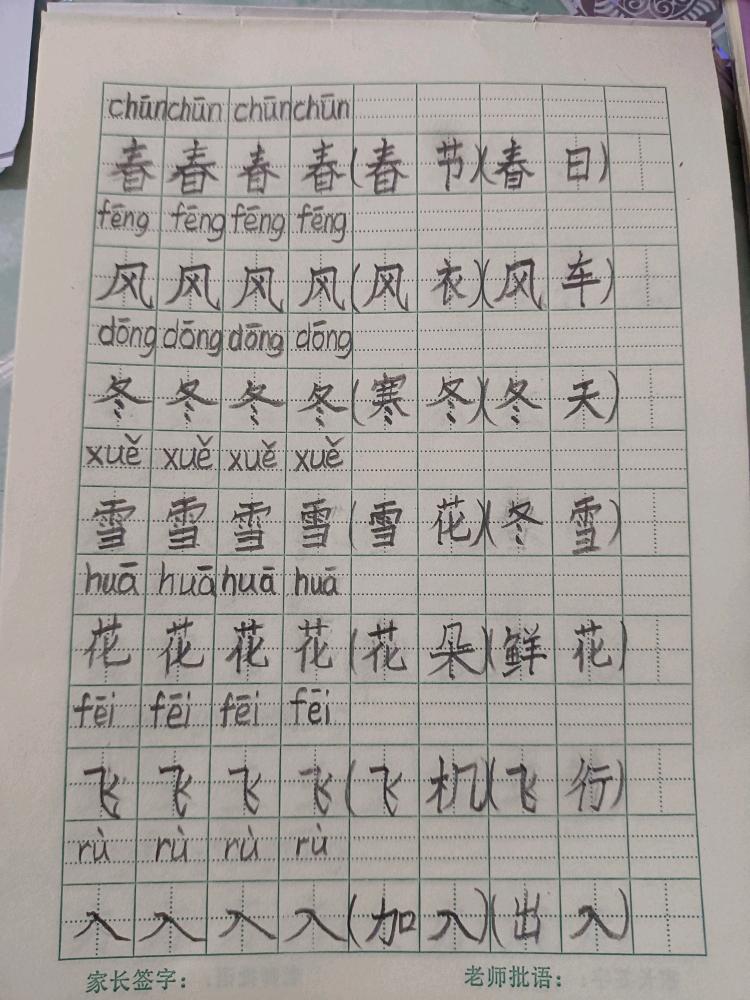 chūn chūn chūn chūn
春 春 春 春 (春 节)(春 日)
fēng fēng fēng fēng
风 风 风 风 (风 衣)(风 车)
dōng dōng dōng dōng
冬 冬 冬 冬 (寒 冬)(冬 天)
xuě xuě xuě xuě
雪 雪 雪 雪 (雪 花)(冬 雪)
huā huā huā huā
花 花 花 花 (花 朵)(鲜 花)
fēi fēi fēi fēi
飞 飞 飞 飞 (飞 机)(飞 行)
rù rù rù rù
入 入 入 入 (加 入)(出 入)
家长签字： 老师批语：